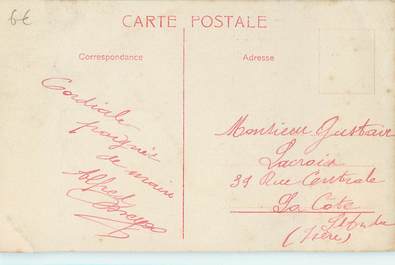 6€
CARTE POSTALE
Correspondance
Adresse
Cordiale
poignée
de main
Alfred
Monsieur Gustave
Lacroix
39 Rue Centrale
La Cote
St André
(Isère)